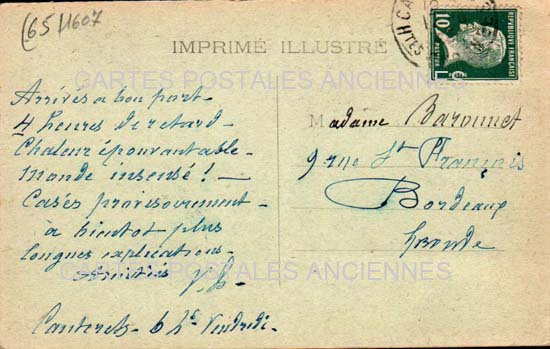 (65) 11607
IMPRIMÉ ILLUSTRÉ
RÉPUBLIQUE FRANÇAISE
10
PASTEUR
CARTES POSTALES ANCIENNES
Arrivés a bon port -
4 heures de retard -
Chaleur épouvantable -
monde insensé ! -
Casés provisoirement -
à bientot plus
longues explications -
Amitiés
Cauterets - 6 h Vendredi -
Madame Baronnet
9 rue St François
Bordeaux
Gironde
CARTES POSTALES ANCIENNES